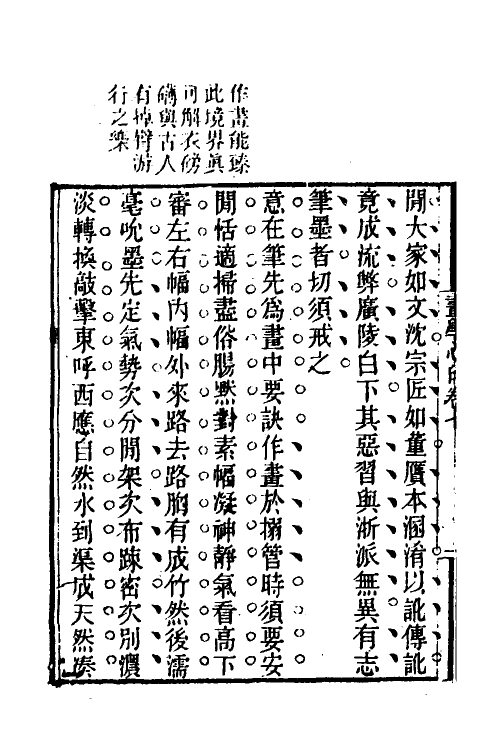 作畫能臻
此境界眞
可解衣傍
礴與古人
有掉臂游
行之樂
畫學心印卷七
閒大家如文沈宗匠如董贋本溷淆以訛傳訛
竟成流弊廣陵白下其惡習與浙派無異有志
筆墨者切須戒之
意在筆先爲畫中要訣作畫於搦管時須要安
閒恬適掃盡俗腸默對素幅凝神靜氣看高下
審左右幅內幅外來路去路胸有成竹然後濡
毫吮墨先定氣勢次分閒架次布踈密次別濃
淡轉換敲擊東呼西應自然水到渠成天然湊